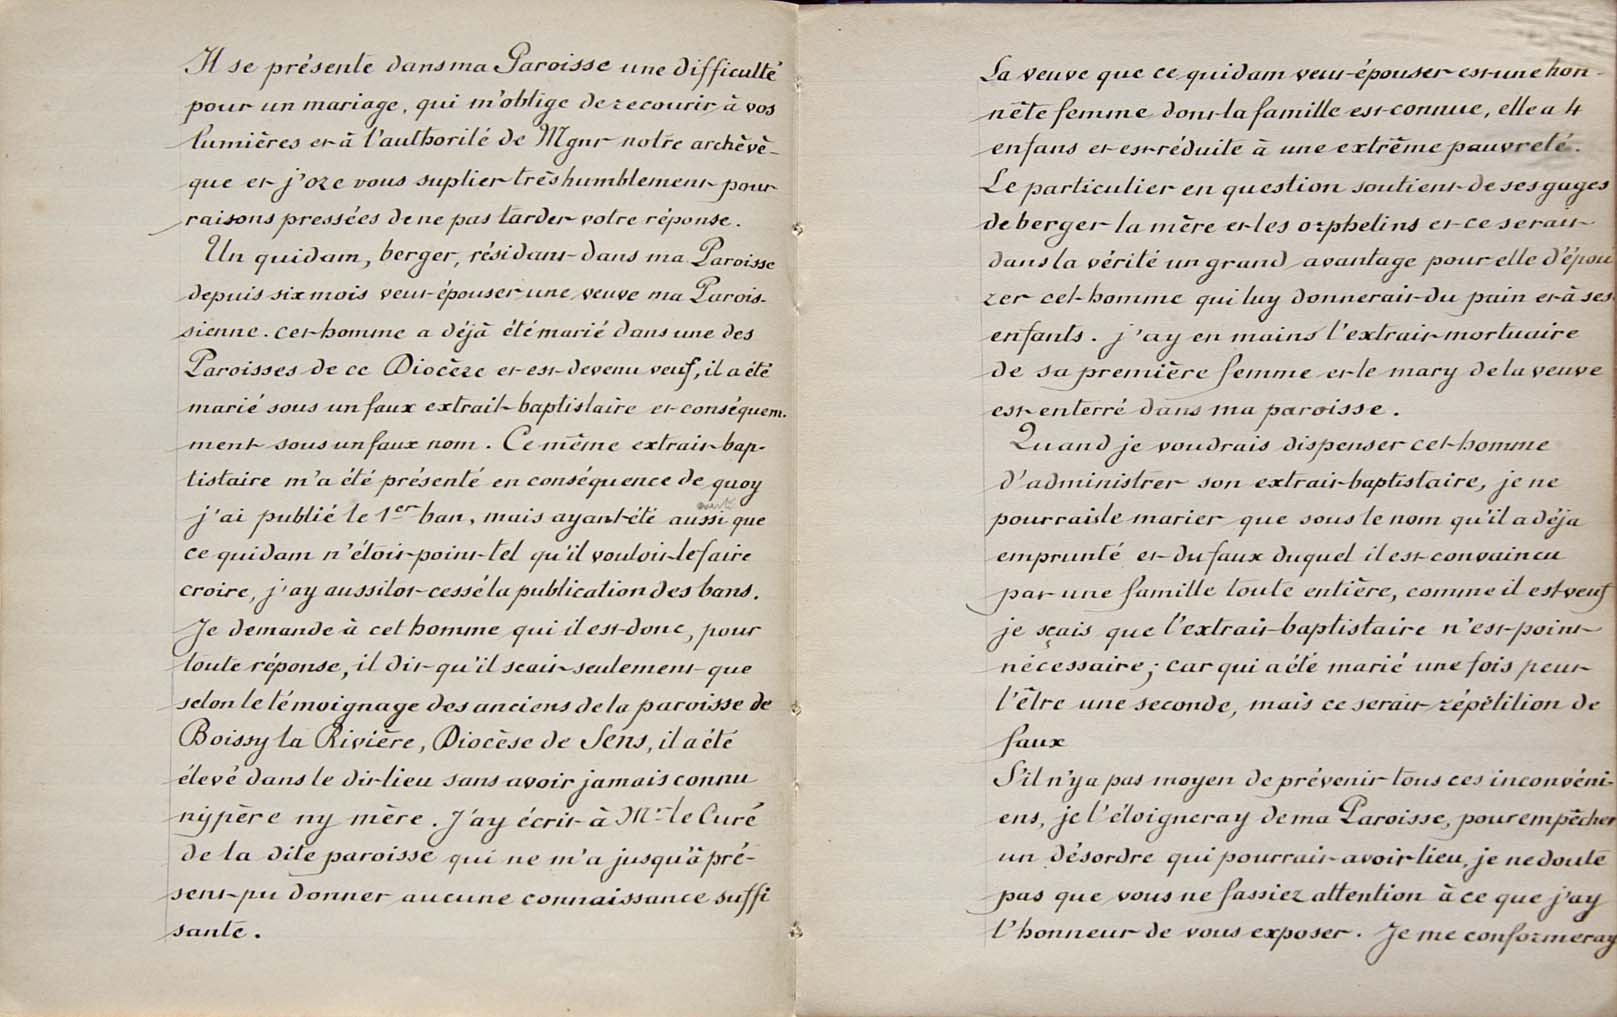 Il se présente dans ma Paroisse une difficulté
pour un mariage, qui m'oblige de recourir à vos
lumières et à l'authorité de Mgnr notre archêvê-
que et j'oze vous suplier très humblement pour
raisons pressées de ne pas tarder votre réponse.
Un quidam, berger, résidant dans ma Paroisse
depuis six mois veut épouser une veuve ma Parois-
sienne. cet homme a déjà été marié dans une des
Paroisses de ce Diocèze et est devenu veuf, il a été
marié sous un faux extrait baptistaire et conséquem-
ment sous un faux nom. Ce même extrait bap-
tistaire m'a été présenté en conséquence de quoy
j'ai publié le 1er ban, mais ayant été aussi que
ce quidam n'étoit point tel qu'il vouloit le faire
croire, j'ay aussitot cessé la publication des bans.
Je demande à cet homme qui il est donc, pour
toute réponse, il dit qu'il scait seulement que
selon le témoignage des anciens de la paroisse de
Boissy la Rivière, Diocèse de Sens, il a été
élevé dans le dit lieu sans avoir jamais connu
ny père ny mère. J'ay écrit à Mr le Curé
de la dite paroisse qui ne m'a jusqu'à pré-
sent pu donner aucune connaissance suffi
sante.
La veuve que ce quidam veut épouser est une hon-
nête femme dont la famille est connue, elle a 4
enfans et est réduite à une extrême pauvreté.
Le particulier en question soutient de ses gages
de berger la mère et les orphelins et ce serait
dans la vérité un grand avantage pour elle d'épou
zer cet homme qui luy donnerait du pain et à ses
enfants. j'ay en mains l'extrait mortuaire
de sa première femme et le mary de la veuve
est enterré dans ma paroisse.
Quand je voudrais dispenser cet homme
d'administrer son extrait baptistaire, je ne
pourrais le marier que sous le nom qu'il a déja
emprunté et du faux duquel il est convaincu
par une famille toute entière, comme il est veuf
je sçais que l'extrait baptistaire n'est point
nécessaire; car qui a été marié une fois peut
l'être une seconde, mais ce serait répétition de
faux
S'il n'y a pas moyen de prévenir tous ces inconvéni-
ens, je l'éloigneray de ma Paroisse, pour empêcher
un désordre qui pourrait avoir lieu, je ne doute
pas que vous ne fassiez attention à ce que j'ay
l'honneur de vous exposer. Je me conformeray